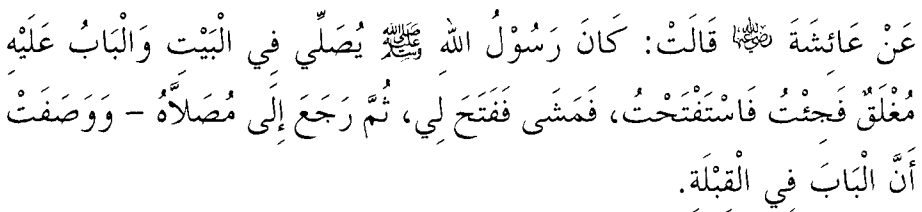 عَنْ عَائِشَةَ رضي الله عنها قَالَتْ: كَانَ رَسُوْلُ اللهِ ﷺ يُصَلِّي فِي الْبَيْتِ وَالْبَابُ عَلَيْهِ
مُغْلَقٌ فَجِئْتُ فَاسْتَفْتَحْتُ، فَمَشَى فَفَتَحَ لِي، ثُمَّ رَجَعَ إِلَى مُصَلاَّهُ – وَوَصَفَتْ
أَنَّ الْبَابَ فِي الْقِبْلَةِ.